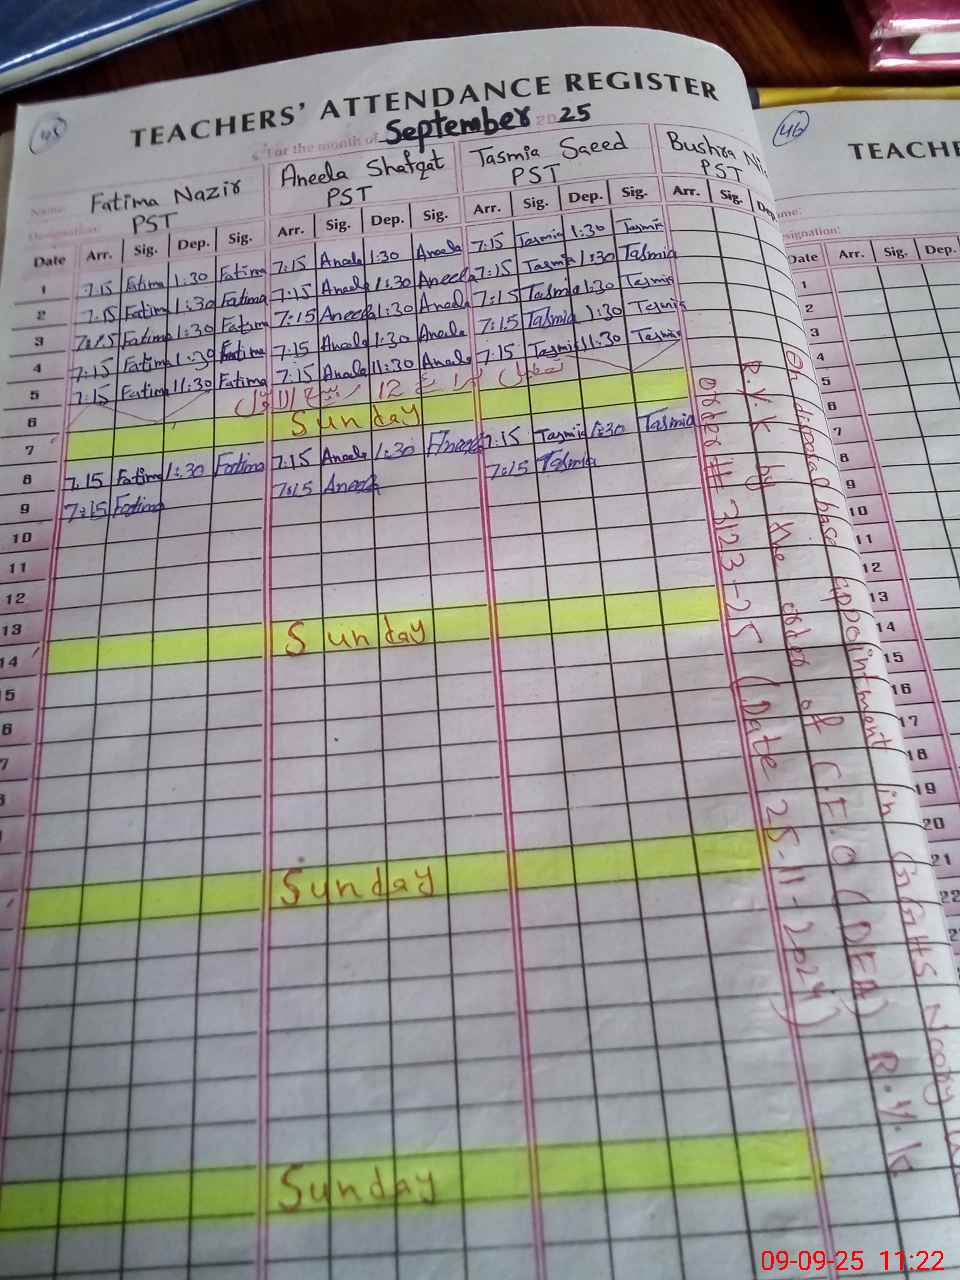 45
TEACHERS' ATTENDANCE REGISTER
For the month of September 2025
Name: Fatima Nazir Aneela Shafqat Tasmia Saeed Bushra
Designation: PST PST PST PST
Date Arr. Sig. Dep. Sig. Arr. Sig. Dep. Sig. Arr. Sig. Dep. Sig. Arr. Sig. Dep.
1 7:15 Fatima 1:30 Fatima 7:15 Aneela 1:30 Aneela 7:15 Tasmia 1:30 Tasmia
2 7:15 Fatima 1:30 Fatima 7:15 Aneela 1:30 Aneela 7:15 Tasmia 1:30 Tasmia
3 7:15 Fatima 1:30 Fatima 7:15 Aneela 1:30 Aneela 7:15 Tasmia 1:30 Tasmia
4 7:15 Fatima 1:30 Fatima 7:15 Aneela 1:30 Aneela 7:15 Tasmia 1:30 Tasmia
5 7:15 Fatima 11:30 Fatima 7:15 Aneela 11:30 Aneela 7:15 Tasmia 11:30 Tasmia
6 12 ربیع الاول تعطیل
7 Sunday
8 7:15 Fatima 1:30 Fatima 7:15 Aneela 1:30 Aneela 7:15 Tasmia 1:30 Tasmia
9 7:15 Fatima 7:15 Aneela 7:15 Tasmia
10
11
12
13
14 Sunday
5
6
7
Sunday
Sunday
On disposal base appointment in GGHS
R.Y.K by the order of C.E.O (DEA) R.Y.K
order # 3123-25 (Date 25-11-2024)
46
TEACHE
signation:
Date Arr. Sig. Dep.
1
2
3
4
5
6
7
8
9
10
11
12
13
14
15
16
17
18
19
20
21
22
09-09-25 11:22